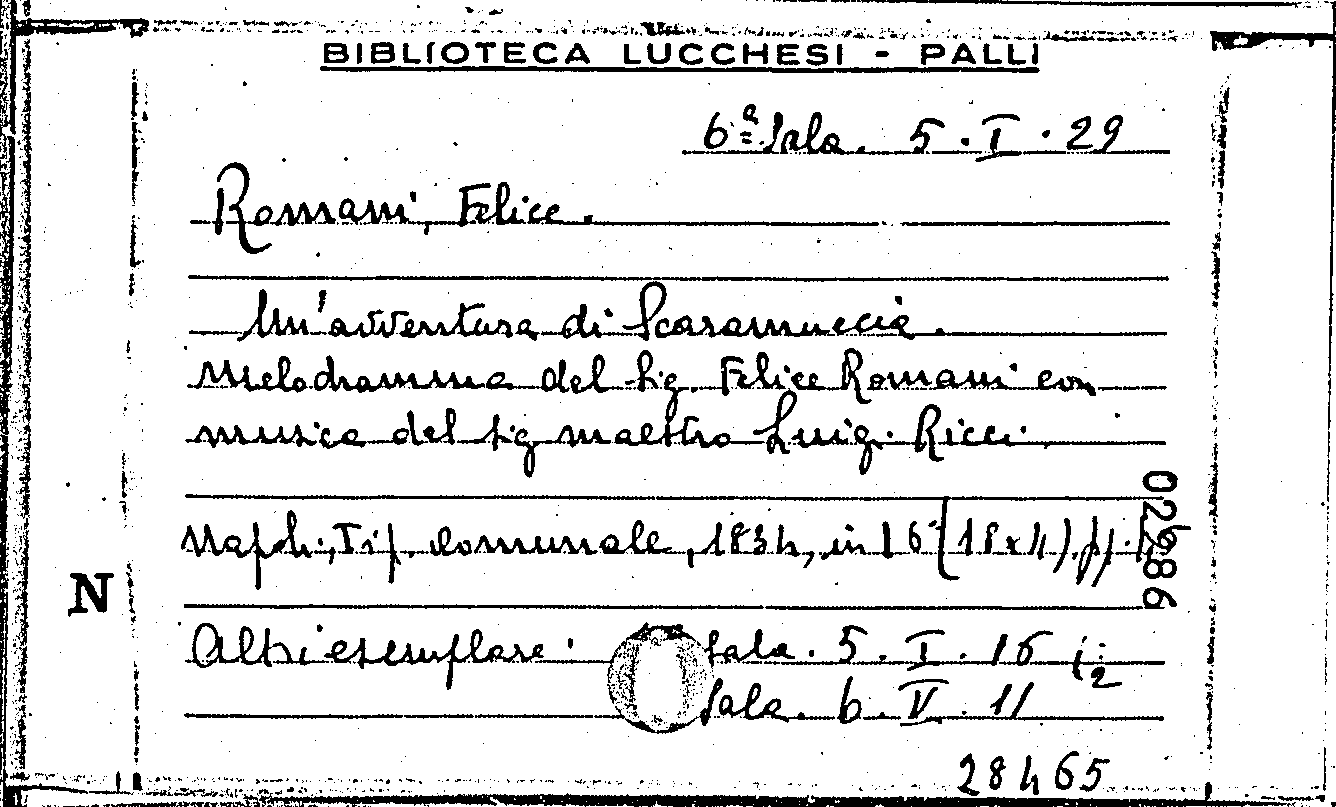 BIBLIOTECA LUCCHESI - PALLI
6ª Sala. 5. I. 29
Romani, Felice.
Un'avventura di Scaramuccia.
Melodramma del Sig. Felice Romani con
musica del sig maestro Luigi Ricci.
Napoli, Tip. Comunale, 1834, in 16° (18x11). pp.
02986
N
Altri esemplare: Sala. 5. I. 16
Sala. 6. V. 11
28465